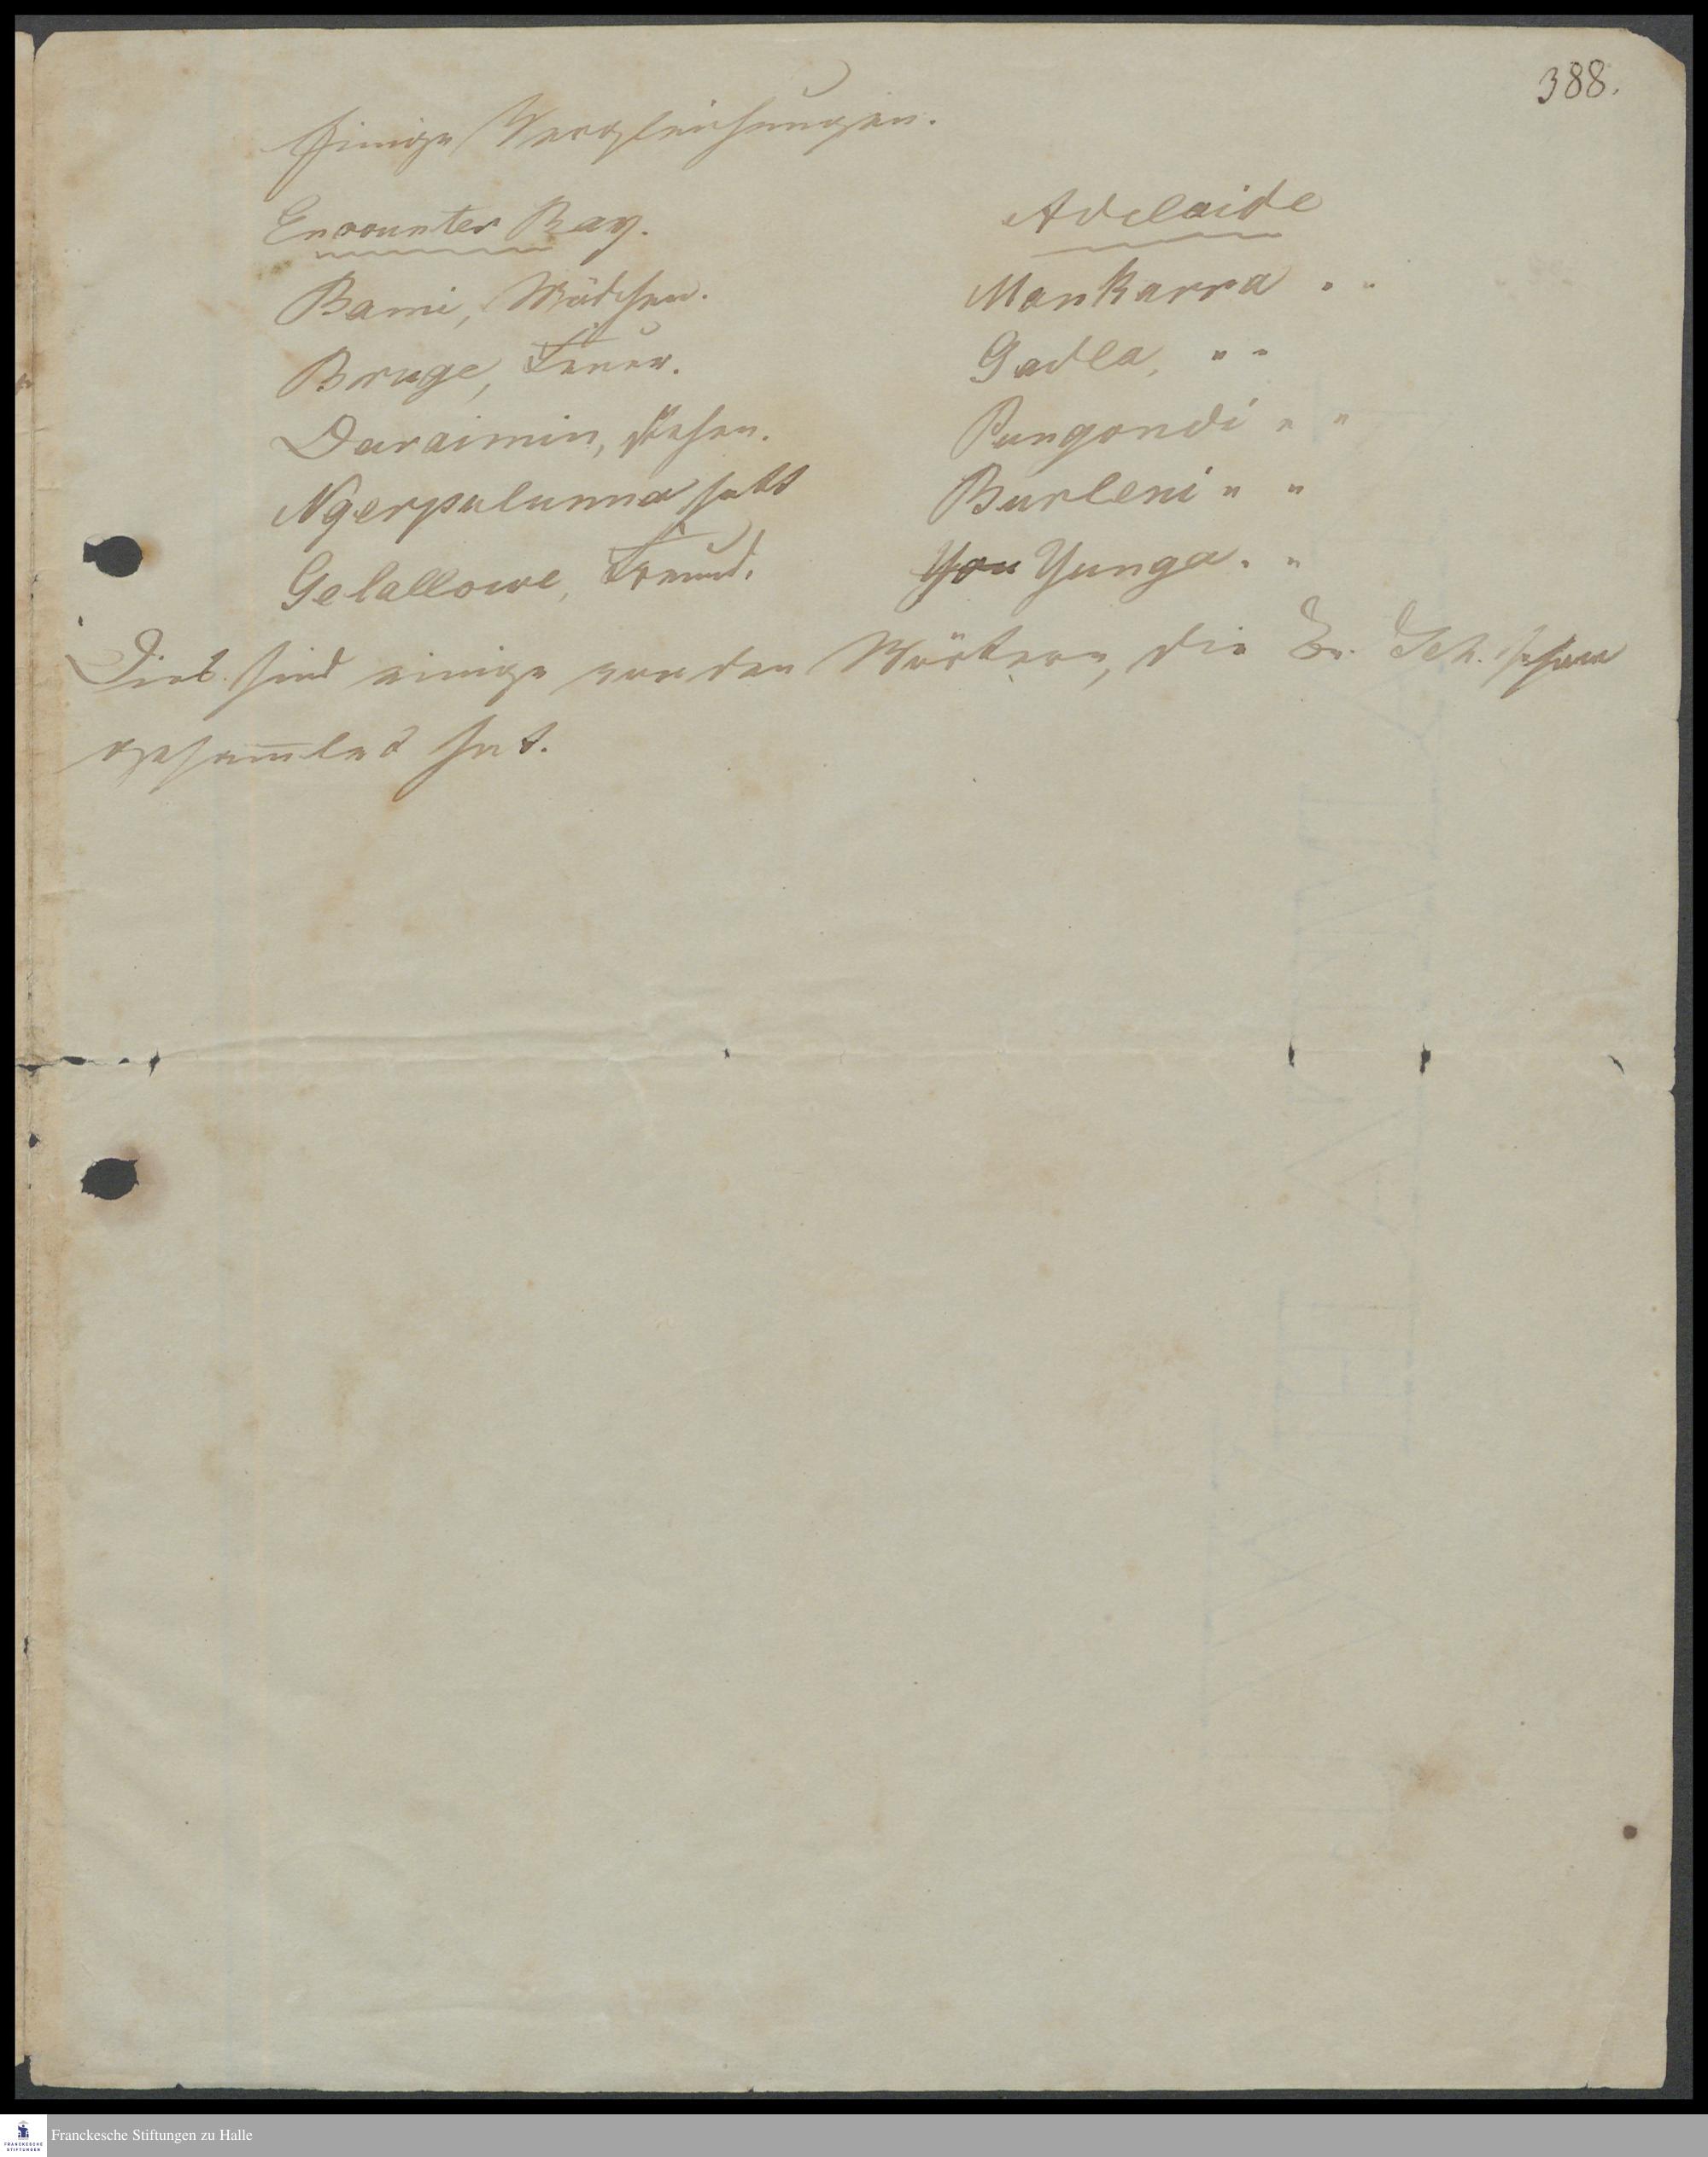 388.
Einige Vergleichungen.
Encounter Bay. Adelaide
Bami, Mädchen. Mankarra " "
Bruge, Feuer. Gadla, " "
Daraimin, stehen. Pungondi " "
Ngerpulumma satt Burleni " "
Gelallowe, Freund. You Yunga. "
Dies sind einige von den Wörtern, die Br. Sch. schon
gesam̅let hat.
Franckesche Stiftungen zu Halle
FRANCKESCHE
STIFTUNGEN